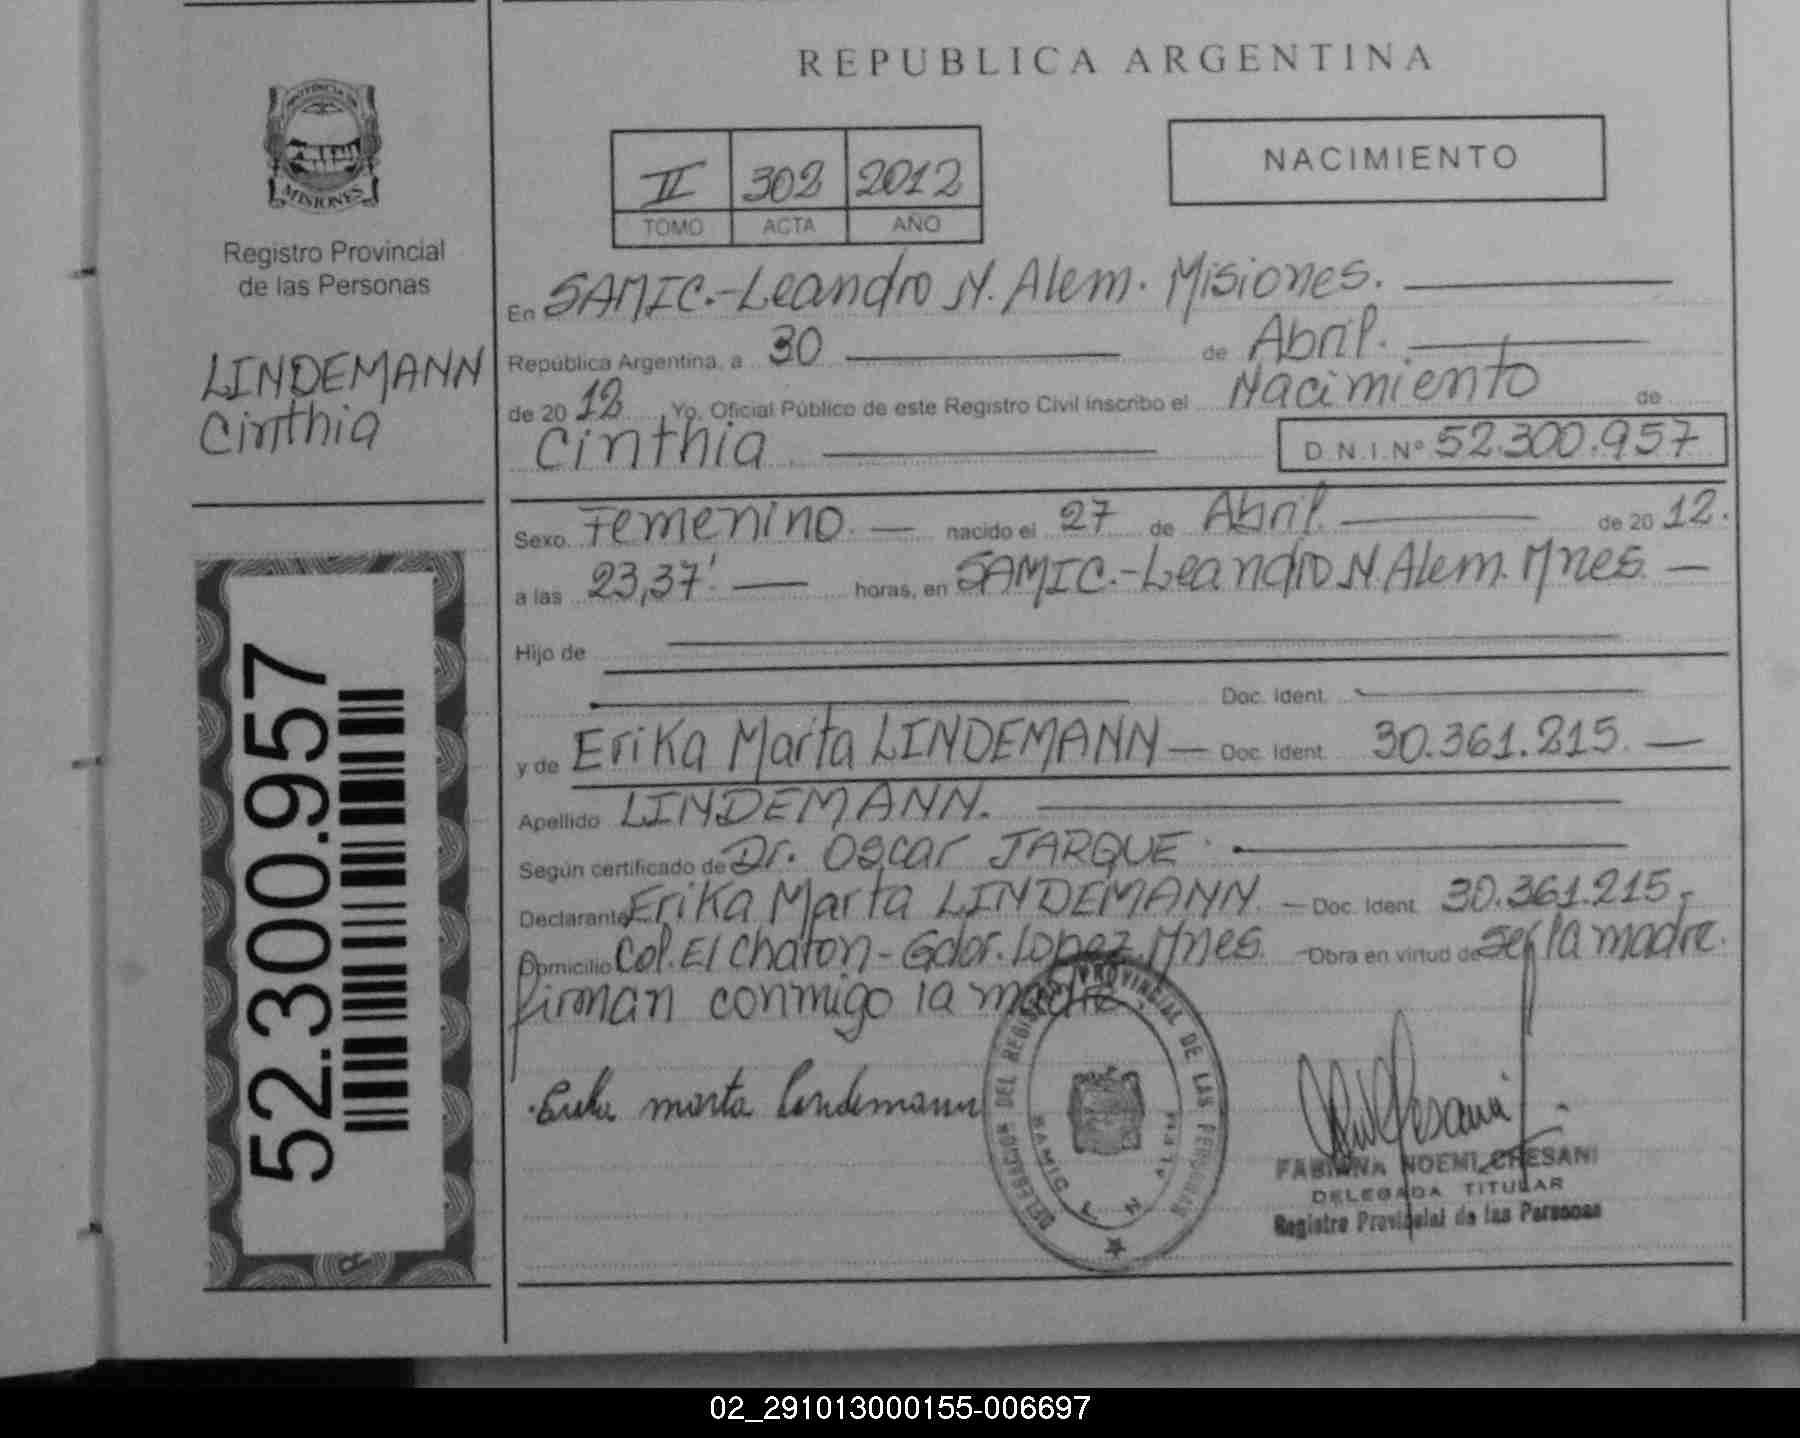 REPUBLICA ARGENTINA
PROVINCIA DE
MISIONES
Registro Provincial
de las Personas
LINDEMANN
Cinthia
52.300.957
II 302 2012
TOMO ACTA AÑO
NACIMIENTO
En SAMIC.-Leandro N. Alem. Misiones.
República Argentina, a 30 de Abril.
de 20 12 Yo, Oficial Público de este Registro Civil inscribo el Nacimiento de
Cinthia D.N.I.Nº 52.300.957
Sexo. Femenino. nacido el 27 de Abril. de 20 12.
a las 23,37'. horas, en SAMIC.-Leandro N. Alem. Mnes.
Hijo de
Doc. Ident.
y de Erika Marta LINDEMANN Doc. Ident. 30.361.215.
Apellido LINDEMANN.
Según certificado de Dr. Oscar JARQUE.
Declarante Erika Marta LINDEMANN. Doc. Ident. 30.361.215,
Domicilio Col. El Chaton - Gdor. Lopez. Mnes. Obra en virtud de ser la madre.
firman conmigo la madre.
Erika marta Lindemann
DELEGACION DEL REGISTRO PROVINCIAL DE LAS PERSONAS
SAMIC
FABIANA NOEMI CRESANI
DELEGADA TITULAR
Registro Provincial de las Personas
02_291013000155-006697